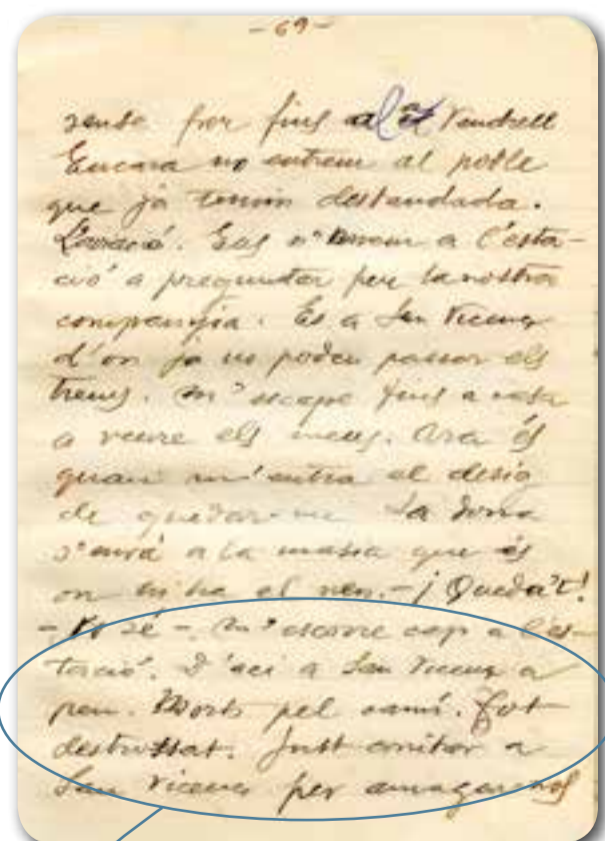 - 69 -
sense fer fins al Vendrell
Encara no entrem al poble
que ja tenim destandada.
L'aviació. Ens n'anem a l'esta-
ció a preguntar per la nostra
companyia. És a San Vicenç
d'on ja no poden passar els
trens. M'escapo fins a casa
a veure els meus. Ara és
quan m'entra el desig
de quedar-me. La dona
s'en va a la masia que és
on hi ha el nen. - ¡Queda't!
- No sé -. M'escorre cap a l'es-
tació. D'ací a San Vicenç a
peu. Morts pel camí. Tot
destrossat. Just arribar a
San Vicenç per amagar-nos